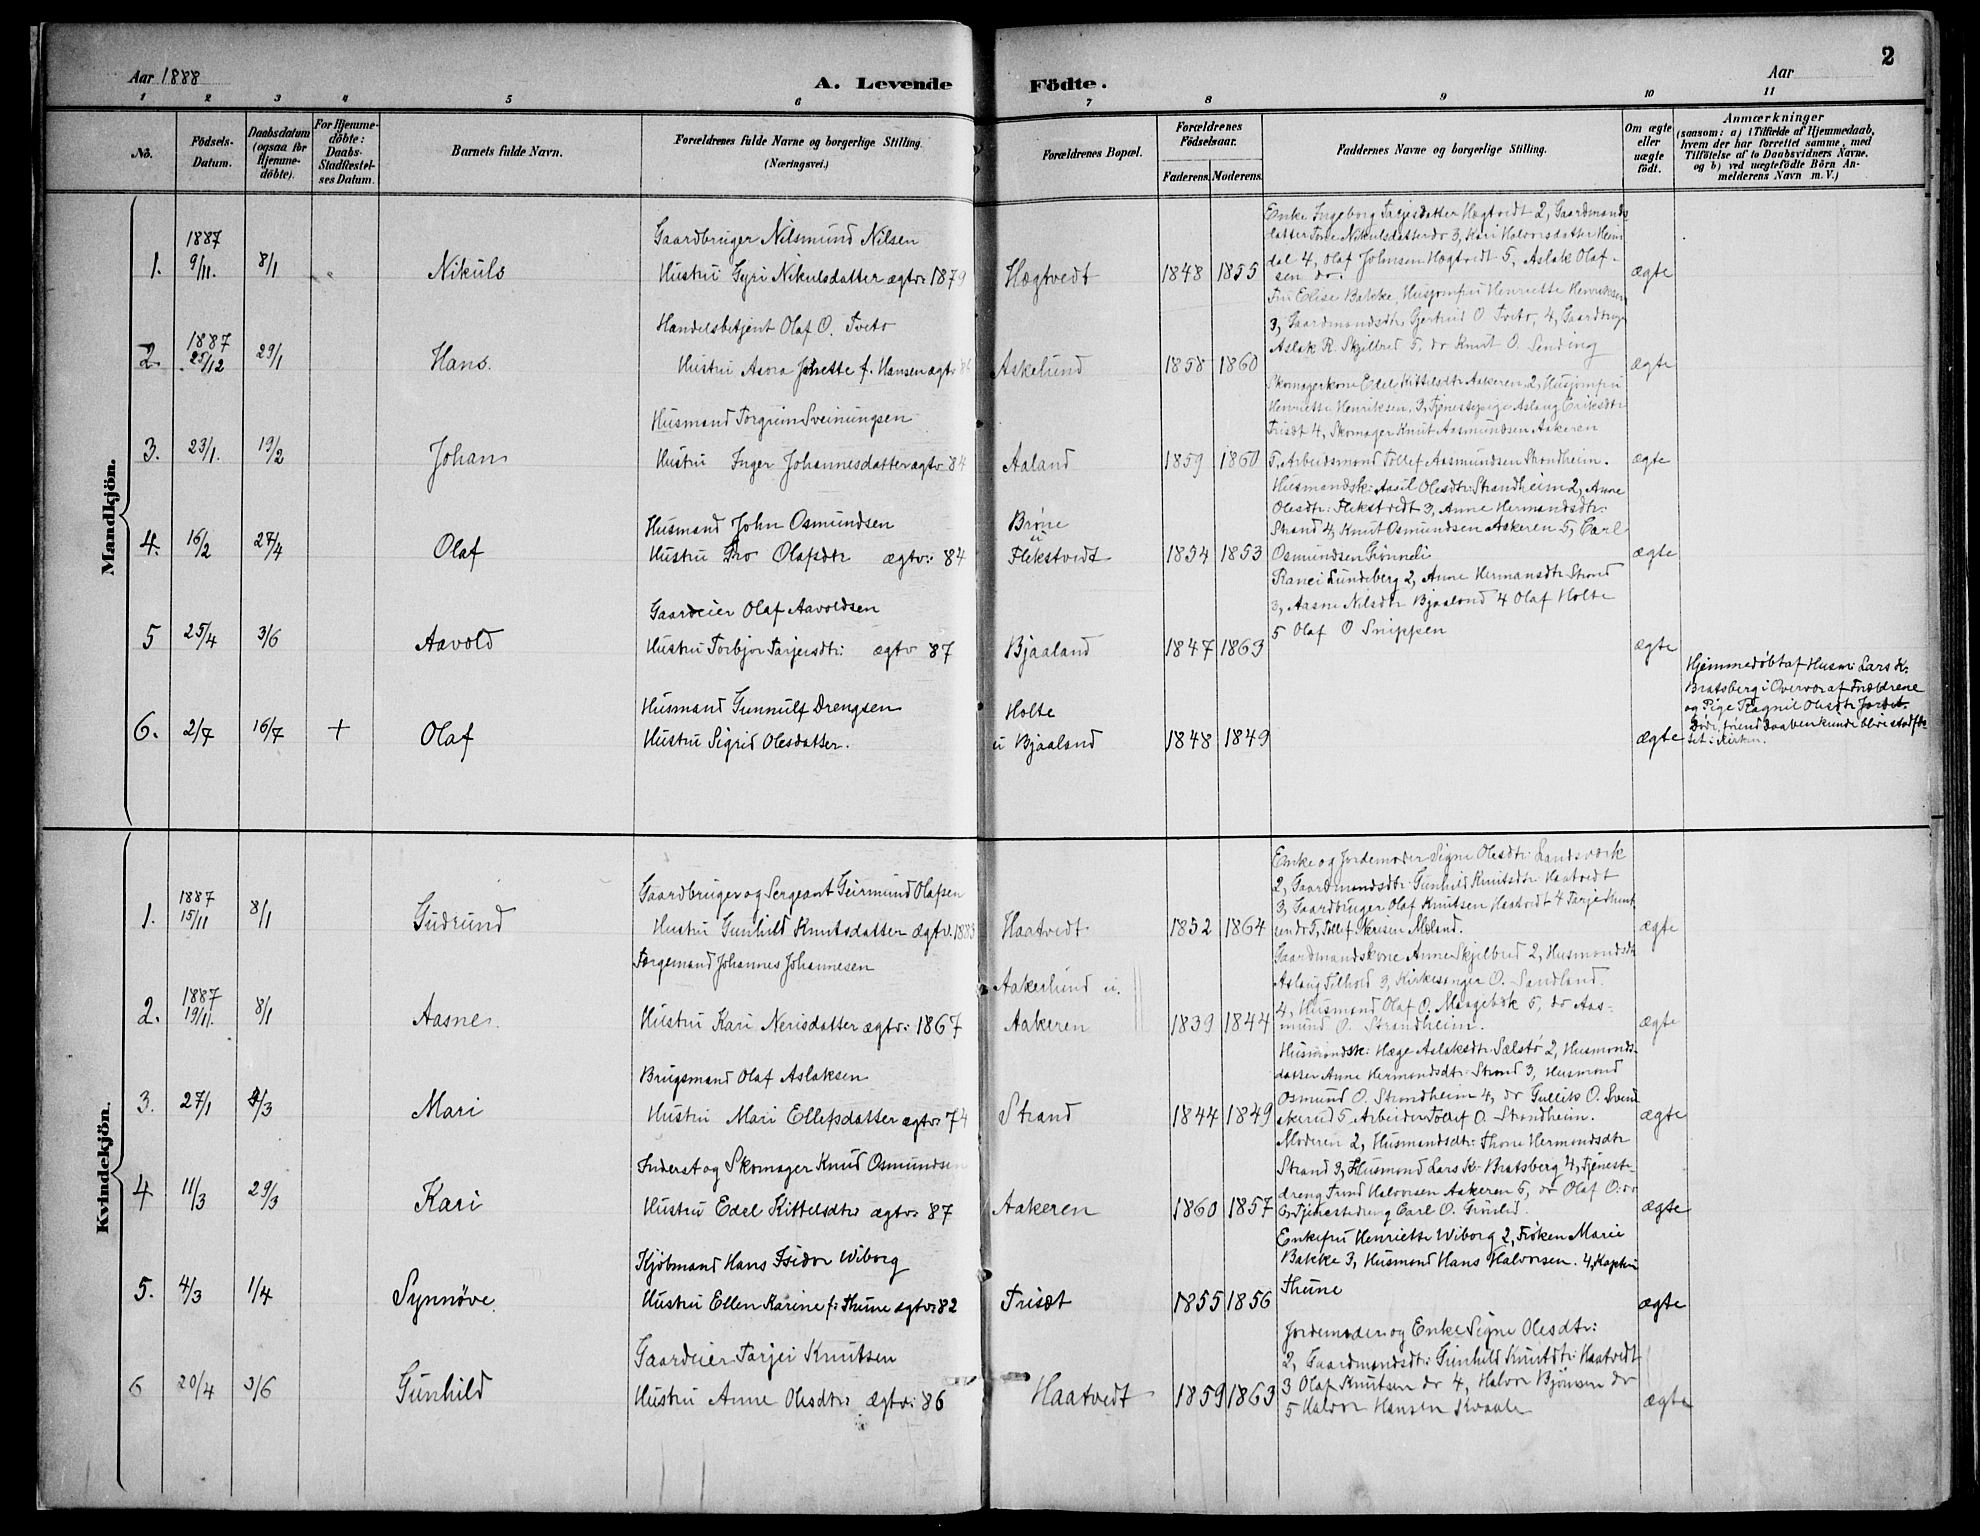 Aar 1888
A. Levende Födte.
Aar
2
1 2 3 4 5 6 7 8 9 10 11
No.
Födsels-Datum.
Daabsdatum (ogsaa for Hjemme-döbte).
For Hjemme-döbte: Daabs-Stadfæstel-ses Datum.
Barnets fulde Navn.
Forældrenes fulde Navne og borgerlige Stilling. (Næringsvei.)
Forældrenes Bopæl.
Forældrenes Födselsaar.
Faderens. Moderens.
Faddernes Navne og borgerlige Stilling.
Om ægte eller uægte födt.
Anmærkninger
(saasom: a) i Tilfælde af Hjemmedaab,
hvem der har forrettet samme, med
Tilföielse af to Daabsvidners Navne.
og b) ved uægtefödte Börn An-
melderens Navn m. V.)
Mandkjön.
1. 1887 9/11. 8/1 Nikuls
Gaardbruger Nilsmund Nilsen
Hustru Gyri Nikulsdatter ægtv: 1879
Hægtvedt 1848 1855
Enke Ingeborg Tarjesdatter Hægtvedt 2, Gaardmands
datter Tone Nikulsdatter do 3, Kari Halvorsdatter Heim
dal 4, Olaf Johnsen Hægtvedt 5, Aslak Olaf-
sen do.
ægte
2. 1887 25/12 29/1 Hans.
Handelsbetjent Olaf O. Tveto
Hustru Asora Josette f. Hansen ægtv 86
Askelund 1858 1860
Fru Elise Bakke, Husjomfru Henriette Henriksen
3, Gaardmandsdtr Gjertrud O Tveto, 4, Gaardbruger
Aslak R. Skjelbred 5, do Knut O. Sending
ægte
3. 23/1. 19/2 Johan
Husmand Torgrim Sveinungsen
Hustru Inger Johannesdatter ægtv: 84
Aaland 1859 1860
Skomagerkone Edel Kittilsdtr Aakeren, 2, Husjomfru
Henriette Henriksen, 3, Tjenestepige Aslaug Eriksdtr
Trisæt 4, Skomager Knut Aasmundsen Aakeren
5, Arbeidsmand Tollef Aasmundsen Strondheim.
ægte
4. 16/2 27/4 Olaf
Husmand John Osmundsen
Hustru Gro Olafsdtr ægtv: 84
Brøne u Flekstvedt 1854 1853
Husmandsk: Aasil Olesdtr: Strandheim 2, Anne
Olesdtr: Flekstvedt 3, Anne Hermansdtr:
Strand 4, Knut Osmundsen Askeren 5, Carl
Osmundsen Grønneli
ægte
5 25/4 3/6 Aavold
Gaardeier Olaf Aavoldsen
Hustru Torbjor Tarjersdtr: ægtv 87
Bjaaland 1847 1863
Ranei Lundeberg 2, Anne Hermansdtr Strond
3, Aasne Nilsdtr Bjaalond 4 Olaf Holte
5 Olaf O Snippen
ægte
6. 2/7 16/7 + Olaf
Husmand Gunnulf Drengsen
Hustru Sigrid Olesdatter.
Holte u Bjaaland 1848 1849
ægte
Hjemmedøbt af Husm: Lars K:
Bratsberg i Overvær af Forældrene
og Pige Ragnil Olesdtr Jordet.
Døde, førend Daaben kunde blive stadfæ-
stet i Kirken.
Kvindekjön.
1. 1887 15/11 8/1 Gudrund
Gaardbruger og Sergeant Geirmund Olafsen
Hustru Gunhild Knutsdatter ægtv. 1883
Haatvedt 1852 1864
Enke og Jordemoder Signe Olesdtr: Landsværk
2, Gaardmandsdtr: Gunhild Knutsdtr: Haatvedt
3, Gaardbruger Olaf Knutsen Haatvedt 4 Tarje Knut-
sen do 5, Tollef Mæland.
ægte
2. 1887 19/11. 8/1 Aasne.
Færgemand Johannes Johannesen
Hustru Kari Nerisdatter ægtv: 1867
Aakerlund u. Aakeren 1839 1844
Gaardmandskone Anne Skjelbred 2, Husmondsdtr
Aslaug Tilhold 3, Kirkesanger O. Sandland.
4, Husmand Olaf O. Maagebæk 5, do Aas-
mund O. Strandheim.
ægte
3. 27/1 4/3 Mari
Brugsmand Olaf Aslaksen
Hustru Mari Ellefsdatter ægtv: 74
Strand 1844 1849
Husmondsk: Hæge Aslaksdtr Sælstø 2, Husmonds-
datter Anne Hermondsdtr: Strond 3, Husmond
Osmund O. Strondheim 4, do Gullik O. Svens
okerud 5, Arbeider Tollef O. Strondheim.
ægte
4 11/3 29/3 Kari
Inderst og Skomager Knud Osmundsen
Hustru Edel Kittelsdtr: ægtv: 87
Aakeren 1860 1857
Moderen 2, Husmandsdtr: Thone Hermondsdtr
Strand 3, Husmond Lars K. Bratsberg 4, Tjeneste-
dreng Trond Halvorsen Aakeren 5, do Olaf O: do
6, Tjenestedreng Carl O. Grønlid.
ægte
5. 4/3 1/4 Synnöve.
Kjøbmand Hans Isidor Wiborg
Hustru Ellen Karine f: Thune ægtv: 82
Trisæt 1855 1856
Enkefru Henriette Wiborg 2, Frøken Marie
Bakke 3, Husmond Hans Halvorsen. 4, Kaptein
Thune
ægte
6 20/4 3/6 Gunhild
Gaardeier Tarjei Knutsen
Hustru Anne Olesdtr: ægtv: 86
Haatvedt 1859 1863
Jordemoder og Enke Signe Olesdtr:
2, Gaardmondsdtr: Gunhild Knutdtr: Haatvedt
3 Olaf Knutsen do 4, Halvor Bjönsen do
5 Halvor Hansen Kvaale
ægte